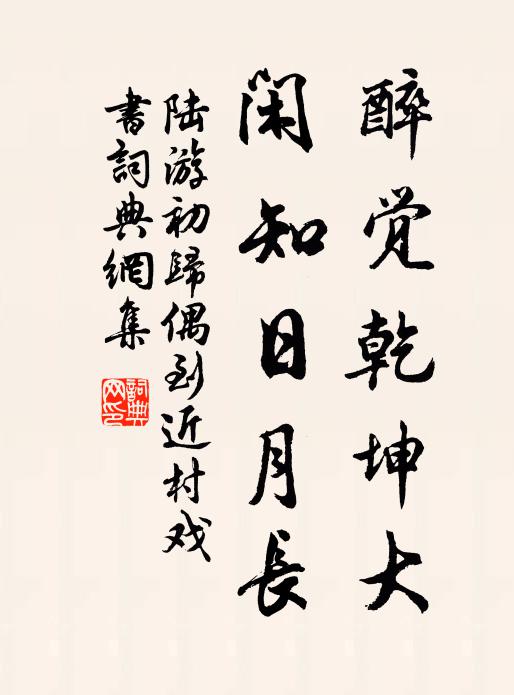 醉觉乾坤大
闲知日月長
陆游初歸偶到近村戏
書詞典網集
詞典网印